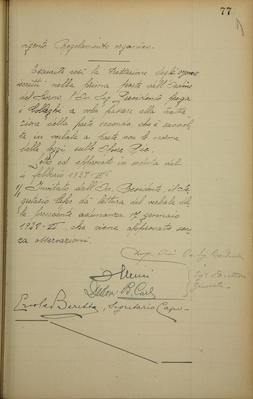 77
vigente Regolamento organico.
Esaurita così la trattazione degli ogget
iscritti nella prima parte dell'Ordine
del Giorno l'On. Sig. Presidente prega
i Colleghi a voler passare alla tratta
zione della parte seconda che è raccol
ta in verbale a parte con le norme
della legge sulle Opere Pie.
Letto ed approvato in seduta del
febbraio 1938-XVI.
Invitato dall'On. Presidente, il Se
gretario Capo dà lettura del verbale del
la precedente adunanza 17 gennaio
1938-XVI che viene approvato sen
za osservazioni.
Ercole Beretta, Segretario Capo